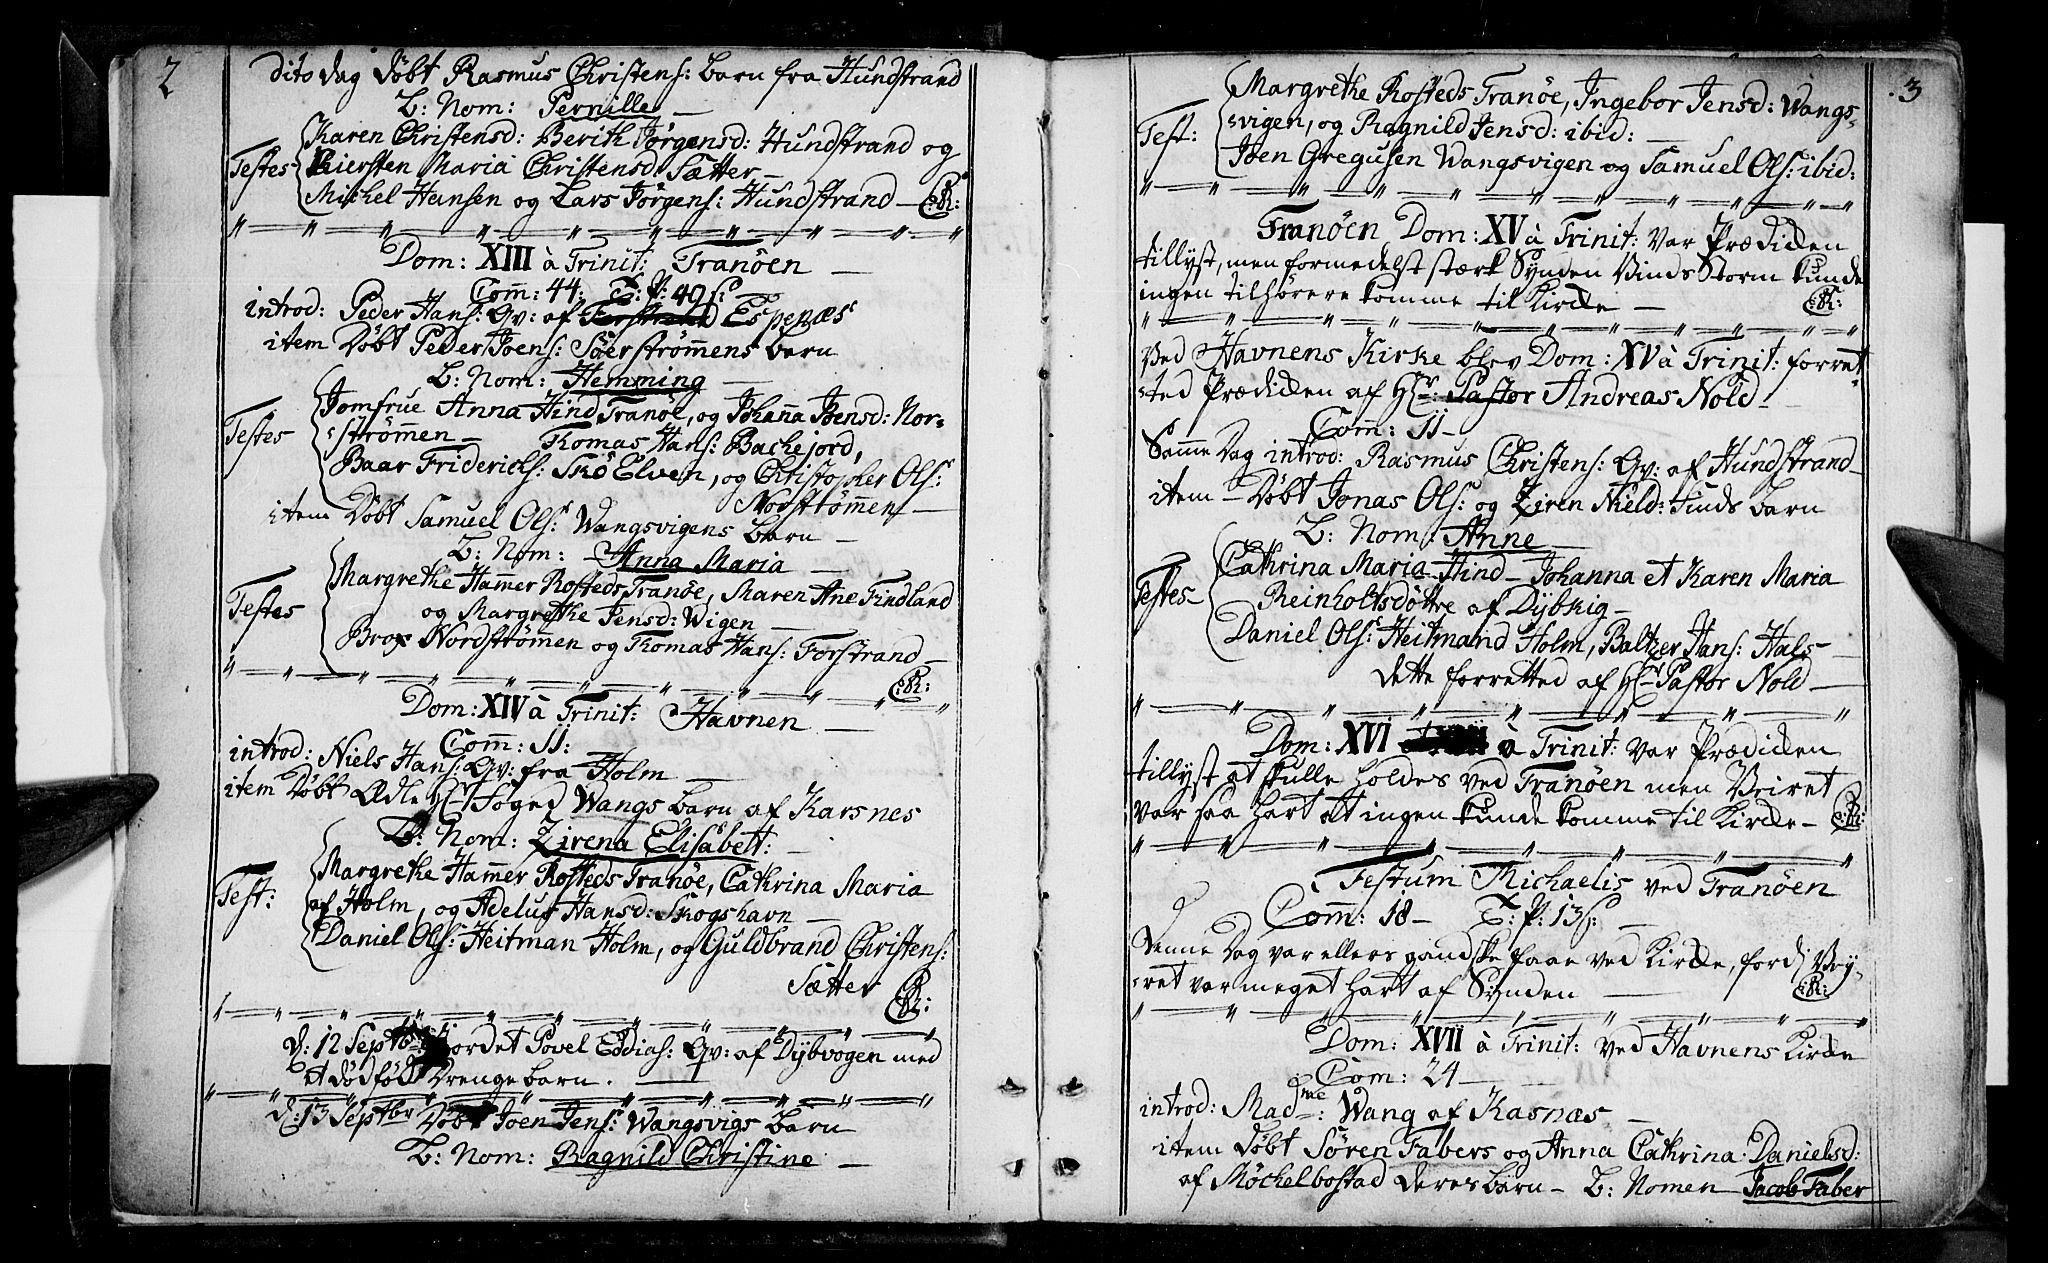 2
dito dag döbt Rasmus Christens: barn fra Hundstrand
B: Nom: Pernille
Karen Christensd: Berith Jörgensd: Hundstrand og
Testes Kiersten Maria Christensd: Sætter
Michel Hansen og Lars Jörgens: Hundstrand
Dom: XIII à Trinit: Tranöen
Com̄: 44: T: P: 40 s:
introd: Peder Hans: Qv: af Espenæs
item Döbt Peder Joens: Söerström̄ens barn
B: Nom: Hemming
Jomfrue Anna Hind Tranöe, og Johan̄a Joensd: Nor-
Testes ström̄en Tomas Hans: Backejord,
Baar Friderichs: Skö Elven, og Christopher Ols:
Nodström̄en
item Döbt Samuel Ols: Wangsvigens barn
B: Nom: Anna Maria
Margrethe Ham̄er Rosteds Tranöe, Maren Ane Findland
Testes og Margrethe Jensd: Wigen
Brox Nordström̄en og Tomas Hans: Forstrand
Dom: XIV à Trinit: Havnen
Com̄: 11:
introd: Niels Hans: Qv: fra Holm
item Döbt Ædle Hr Foged Wangs barn af Karsnes
B: Nom: Zirena Elisabett:
Margrethe Ham̄er Rosteds Tranöe, Cathrina Maria
Test: af Holm, og Adelus Hansd: Skogshavn
Daniel Ols: Heitman Holm, og Guldbrand Christens:
Sætter
d: 12 Septbr jordet Povel Eddias: Qv: af Dybvogen med
et dödföd drengebarn.
d: 13 Septbr Döbt Joen Jens: Wangsvigs barn
B: Nom: Ragnild Christine
3
Margrethe Rosteds Tranöe, Ingebor Jensd: Wangs-
Test: vigen, og Ragnild Jensd: ibid:
Joen Gregusen Wangsvigen og Samuel Ols: ibid:
Tranöen Dom: XV à Trinit: var Prædicken
tillyst, men formedelst stærk Synden Vinds Storm kunde
ingen tilhörere komme til Kircke
Ved Havnens Kirke blev Dom: XV à Trinit: forret
sted Prædicken af Hr: Pastor Andreas Nold
Com̄: 11
Sam̄e Dag introd: Rasmus Christens: Qv: af Hundstrand
item Döbt Jonas Ols: og Ziren Nield: Finds barn
B: Nom: Anne
Cathrina Maria Hind Johanna et Karen Maria
Testes Reinholtsdöttre af Dybvig
Daniel Ols: Heitmand Holm, Baltzer Hans: Hals
dette forretted af Hr Pastor Nold
Dom: XVI à Trinit: var Prædicken
tillyst at skulle holdes ved Tranöen men Veiret
var saa hart at ingen kunde komme til Kircke
Festum Michaelis ved Tranöen
Com̄: 18 T: P: 13 s:
Denne Dag var ellers gandske faae ved Kircke, fordj Vey-
ret var meget hart af Synden
Dom: XVII à Trinit: ved Havnens Kircke
Com: 24
introd: Madme: Wang af Kasnæs
item döbt Sören Fabers og Anna Cathrina Danielsd:
af Möckelbostad deres barn B: Nomen Jacob Faber